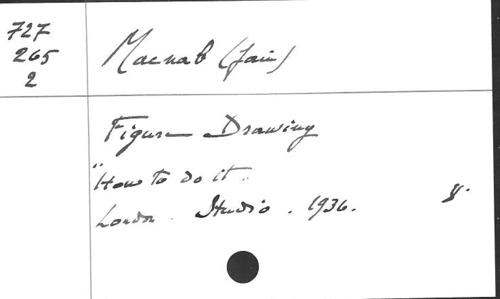 727
265
2
Macnab (Jain)
Figure Drawing
"How to do it"
London. Studio. 1936.